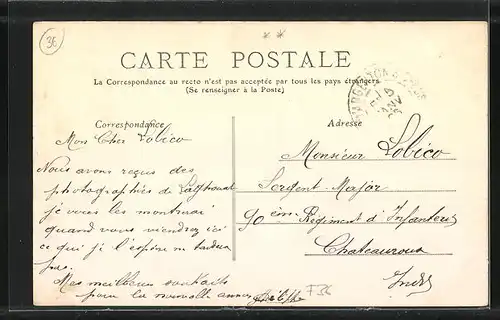 36
CARTE POSTALE
La Correspondance au recto n'est pas acceptée par tous les pays étrangers
(Se renseigner à la Poste)
Correspondance
Mon Cher Lobico
Nous avons reçus des
photographies de Laghouat
je vous les montrerai
quand vous viendrez ici
ce qui je l'espère ne tardera
pas.
Mes meilleurs souhaits
pour la nouvelle année
F36
Adresse
Monsieur Lobico
Sergent-Major
90ème Régiment d'Infanterie
Chateauroux
Indre